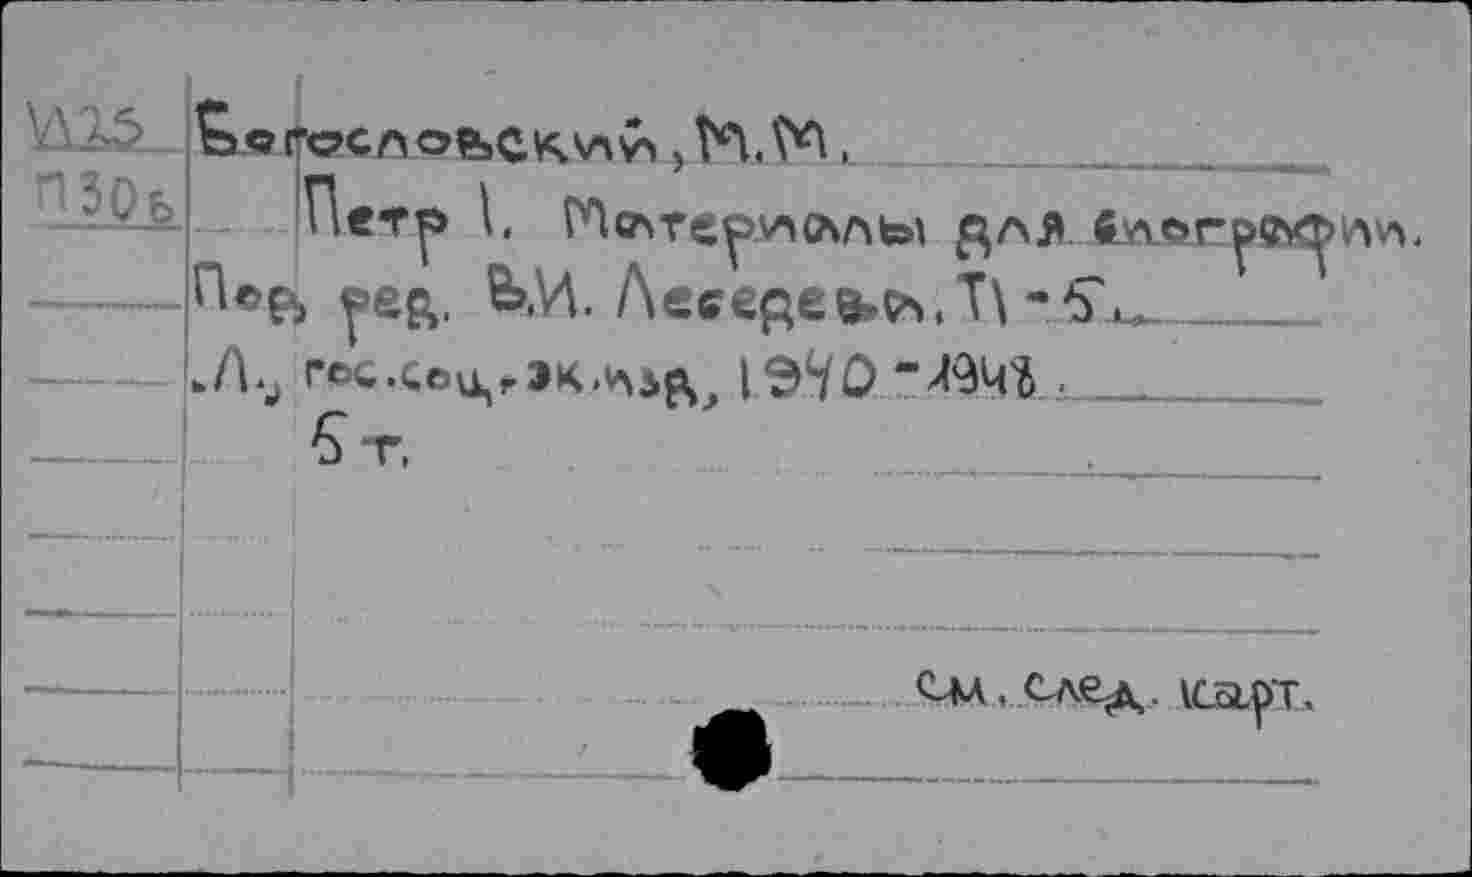 И25 Богословский, М.М.
П30б Петр I. Материалы для биографии.
Под ред. В.И. Лебедева. Т1-5.
Л., гос.соц.-эк.изд, 1940-1948.
5 т.
См. след. карт.